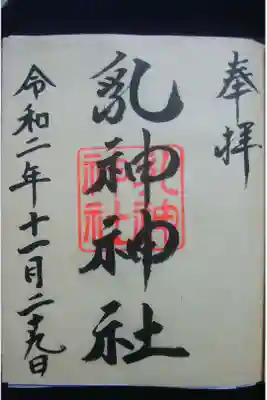 奉拝
乳神神社
令和二年十一月二十九日
乳神
神社